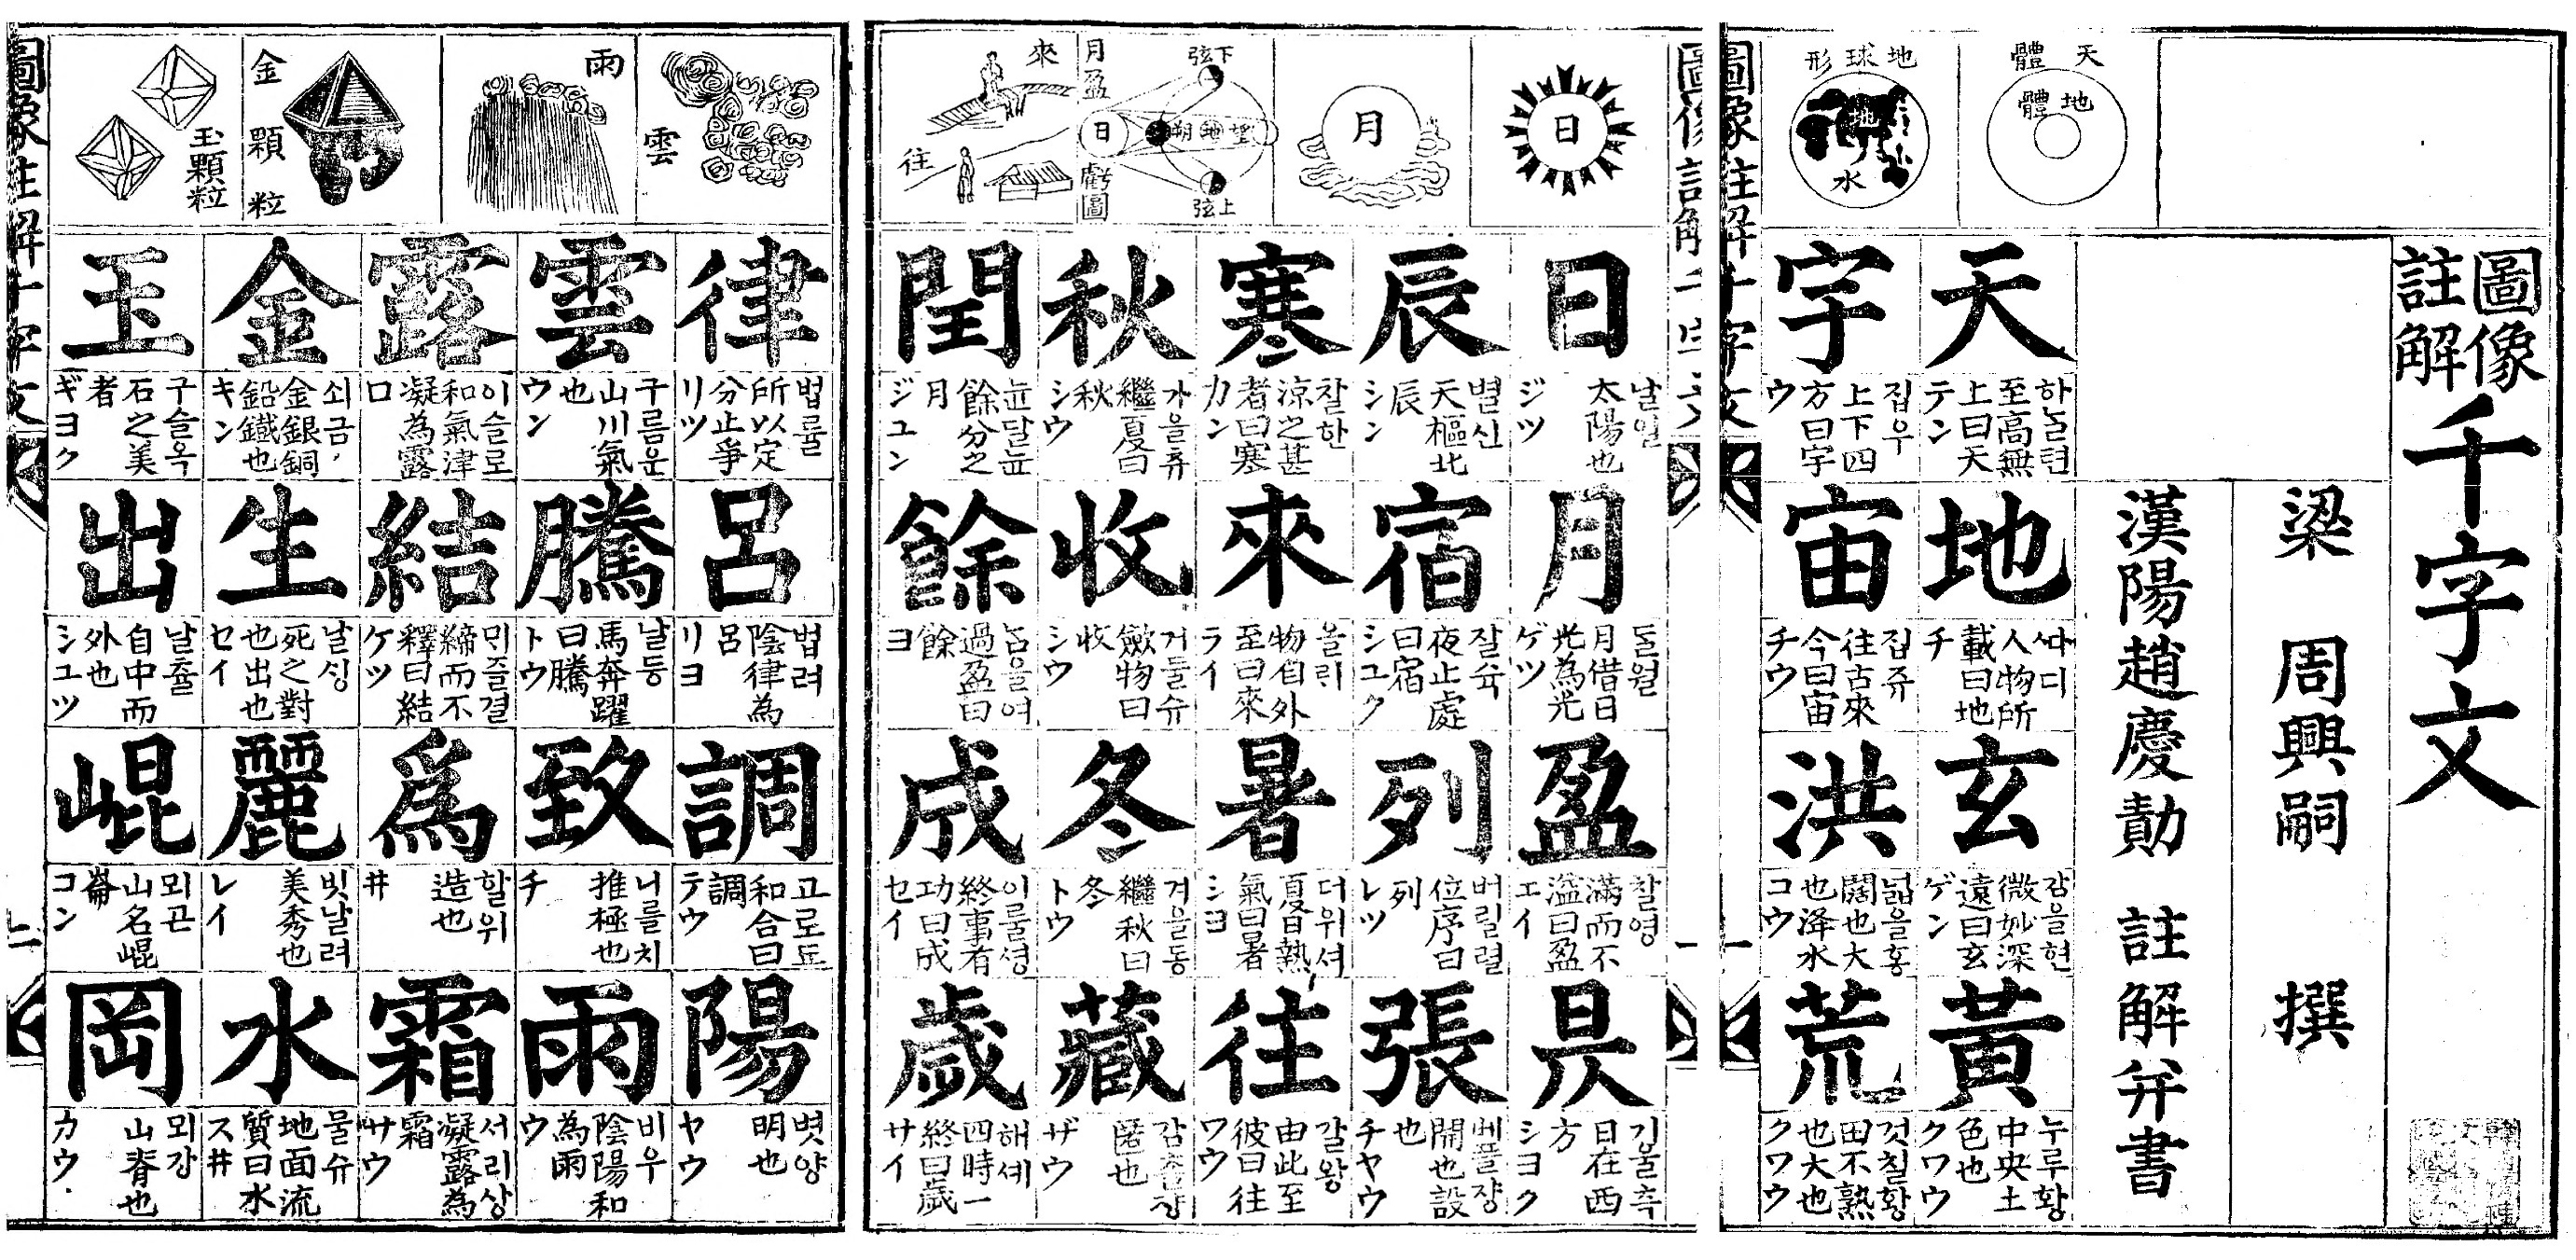 圖像註解千字文
梁 周興嗣 撰
漢陽趙慶勣 註解幷書
天體
地體
地球形
地
水
天
하ᄂᆞᆯ텬
至高無
上曰天
テン
地
ᄯᅡ디
人物所
載曰地
チ
玄
감을현
微妙深
遠曰玄
ゲン
黃
누루황
中央土
色也
クワウ
宇
집우
上下四
方曰宇
ウ
宙
집쥬
往古來
今曰宙
チウ
洪
넓을홍
闊也大
也洚水
コウ
荒
것칠황
田不熟
也大也
クワウ
圖像註解千字文
一
日
月
月盈虧圖
下弦
日
朔
地
望
上弦
來
往
日
날일
太陽也
ジツ
月
ᄃᆞᆯ월
月借日
光為光
ゲツ
盈
찰영
滿而不
溢曰盈
エイ
昃
기울측
日在西
方
シヨク
辰
별신
天樞北
辰
シン
宿
잘슉
夜止處
曰宿
シユク
列
버릴렬
位序曰
列
レツ
張
베플쟝
開也設
也
チヤウ
寒
찰한
涼之甚
者曰寒
カン
來
올ᄅᆡ
物自外
至曰來
ライ
暑
더위셔
夏日熱
氣曰暑
シヨ
往
갈왕
由此至
彼曰往
ワウ
秋
가을츄
繼夏曰
秋
シウ
收
거둘슈
斂物曰
收
シウ
冬
겨을동
繼秋曰
冬
トウ
藏
감츌쟝
匿也
ザウ
閏
윤달윤
餘分之
月
ジユン
餘
남을여
過盈曰
餘
ヨ
成
이룰셩
終事有
功曰成
セイ
歲
해셰
四時一
終曰歲
サイ
圖像註解千字文
雲
雨
金顆粒
玉顆粒
律
법률
所以定
分止爭
リツ
呂
법려
陰律為
呂
リヨ
調
고로됴
和合曰
調
テウ
陽
볏양
明也
ヤウ
雲
구름운
山川氣
也
ウン
騰
날등
馬奔躍
曰騰
トウ
致
니를치
推極也
チ
雨
비우
陰陽和
為雨
ウ
露
이슬로
和氣津
凝為露
ロ
結
ᄆᆡ즐결
締而不
釋曰結
ケツ
爲
할위
造也
ヰ
霜
서리상
凝露為
霜
サウ
金
쇠금
金銀銅
鉛鐵也
キン
生
날ᄉᆡᆼ
死之對
也出也
セイ
麗
빗날려
美秀也
レイ
水
물슈
地面流
質曰水
スヰ
玉
구슬옥
石之美
者
ギヨク
出
날츌
自中而
外也
シユツ
崐
뫼곤
山名崐
崙
コン
岡
뫼강
山脊也
カウ
圖像註解千字文
二